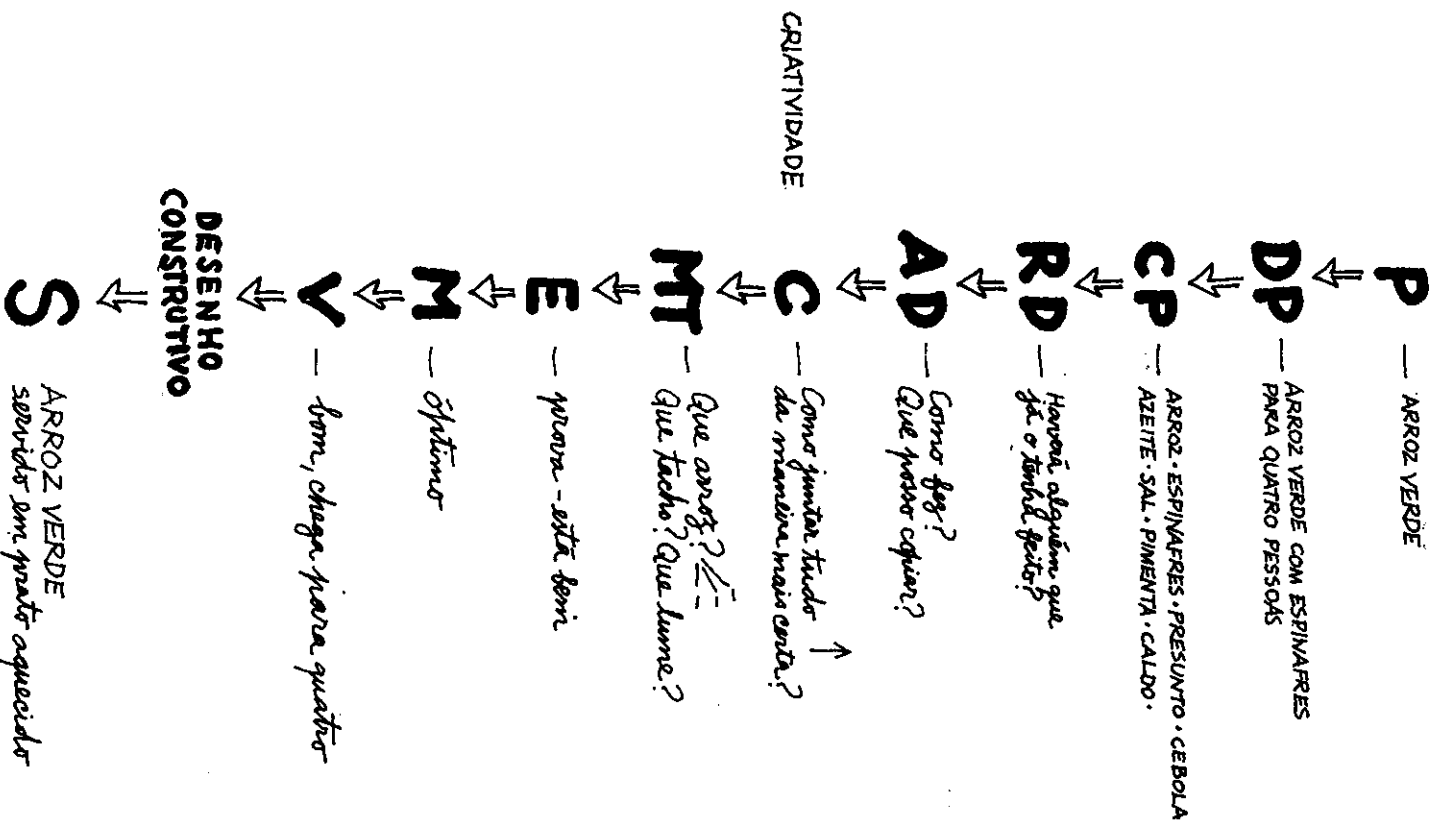 P — ARROZ VERDE
DP — ARROZ VERDE COM ESPINAFRES
PARA QUATRO PESSOAS
CP — ARROZ · ESPINAFRES · PRESUNTO · CEBOLA
AZEITE · SAL · PIMENTA · CALDO ·
RD — Haverá alguém que
já o tenha feito?
AD — Como fez?
Que posso copiar?
CRIATIVIDADE
C — Como juntar tudo
da maneira mais certa?
MT — Que arroz?
Que tacho? Que lume?
E — prova - está bem
M — óptimo
V — bom, chega para quatro
DESENHO
CONSTRUTIVO
S
ARROZ VERDE
servido em prato aquecido